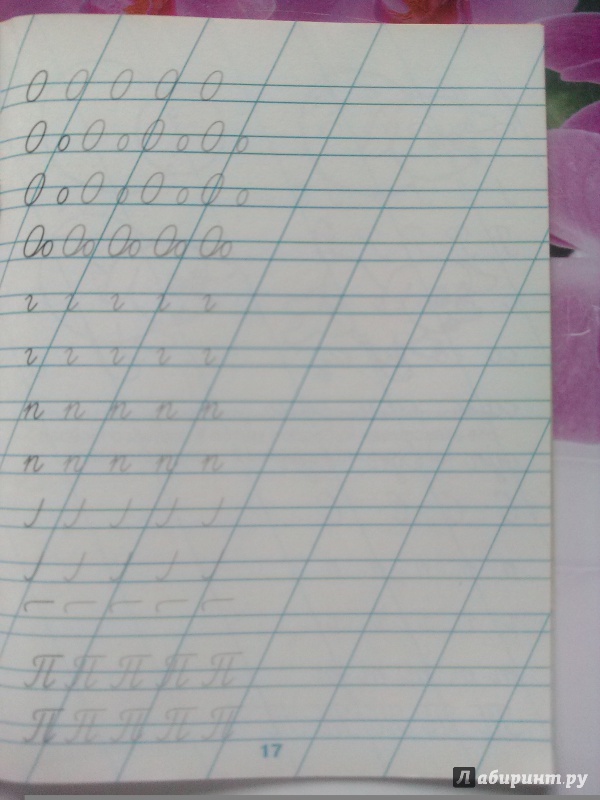 О О О О О
О о О о О о О о
О о О о О о О о
Оо Оо Оо Оо Оо
г г г г г
г г г г г
п п п п п
п п п п п
П П П П П
П П П П П
17
Лабиринт.ру